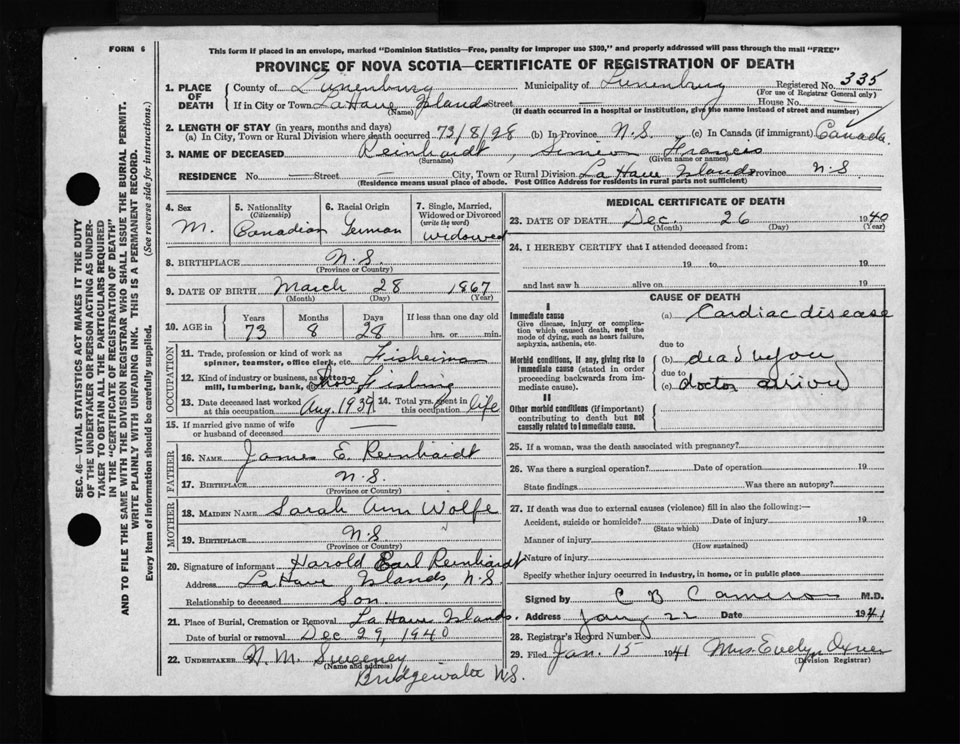 FORM 6
This form if placed in an envelope, marked "Dominion Statistics—Free, penalty for improper use $300," and properly addressed will pass through the mail "FREE"
PROVINCE OF NOVA SCOTIA—CERTIFICATE OF REGISTRATION OF DEATH
1. PLACE OF DEATH County of Lunenburg Municipality of Lunenburg Registered No. 335
(For use of Registrar General only)
If in City or Town LaHave Islands Street House No.
(Name) (If death occurred in a hospital or institution, give the name instead of street and number)
2. LENGTH OF STAY (in years, months and days)
(a) In City, Town or Rural Division where death occurred 73/8/28 (b) In Province N.S. (c) In Canada (if immigrant) Canada
3. NAME OF DECEASED Reinhardt, Simeon Francis
(Surname) (Given name or names)
RESIDENCE No. — Street — City, Town or Rural Division La Have Islands Province N.S
(Residence means usual place of abode. Post Office Address for residents in rural parts not sufficient)
4. Sex M.
5. Nationality (Citizenship) Canadian
6. Racial Origin German
7. Single, Married, Widowed or Divorced (write the word) widowed
8. BIRTHPLACE N.S.
(Province or Country)
9. DATE OF BIRTH March 28 1867
(Month) (Day) (Year)
10. AGE in Years Months Days If less than one day old
73 8 28 hrs. or min.
OCCUPATION
11. Trade, profession or kind of work as spinner, teamster, office clerk, etc. Fisherman
12. Kind of industry or business, as cotton mill, lumbering, bank, Shore Fishing
13. Date deceased last worked at this occupation Aug. 1939 14. Total yrs. spent in this occupation life
15. If married give name of wife or husband of deceased —
FATHER
16. NAME James E. Reinhardt
17. BIRTHPLACE N.S.
(Province or Country)
MOTHER
18. MAIDEN NAME Sarah Ann Wolfe
19. BIRTHPLACE N.S.
(Province or Country)
20. Signature of informant Harold Earl Reinhardt
Address La Have Islands, N.S
Relationship to deceased Son.
21. Place of Burial, Cremation or Removal La Have Islands.
Date of burial or removal Dec 29, 1940
22. UNDERTAKER Sweeney
(Name and address)
Bridgewater N.S.
MEDICAL CERTIFICATE OF DEATH
23. DATE OF DEATH Dec. 26 1940
(Month) (Day) (Year)
24. I HEREBY CERTIFY that I attended deceased from:
19 to 19
and last saw h alive on 19
CAUSE OF DEATH
I
Immediate cause
Give disease, injury or complication which caused death, not the mode of dying, such as heart failure, asphyxia, asthenia, etc.
(a) Cardiac disease
due to
Morbid conditions, if any, giving rise to immediate cause (stated in order proceeding backwards from immediate cause).
(b) dead before
due to
(c) doctor arrived
II
Other morbid conditions (if important) contributing to death but not causally related to immediate cause.
25. If a woman, was the death associated with pregnancy?
26. Was there a surgical operation? Date of operation 19
State findings Was there an autopsy?
27. If death was due to external causes (violence) fill in also the following:—
Accident, suicide or homicide? Date of injury 19
(State which)
Manner of injury
(How sustained)
Nature of injury
Specify whether injury occurred in industry, in home, or in public place
Signed by C B Cameron M.D.
Address Jany 22 Date 1941
28. Registrar's Record Number
29. Filed Jan. 15 1941 Mrs Evelyn
(Division Registrar)
SEC. 46—VITAL STATISTICS ACT MAKES IT THE DUTY
OF THE UNDERTAKER OR PERSON ACTING AS UNDER-
TAKER TO OBTAIN ALL THE PARTICULARS REQUIRED
IN THE "CERTIFICATE OF REGISTRATION OF DEATH"
AND TO FILE THE SAME WITH THE DIVISION REGISTRAR WHO SHALL ISSUE THE BURIAL PERMIT.
WRITE PLAINLY WITH UNFADING INK. THIS IS A PERMANENT RECORD.
Every item of information should be carefully supplied. (See reverse side for instructions.)